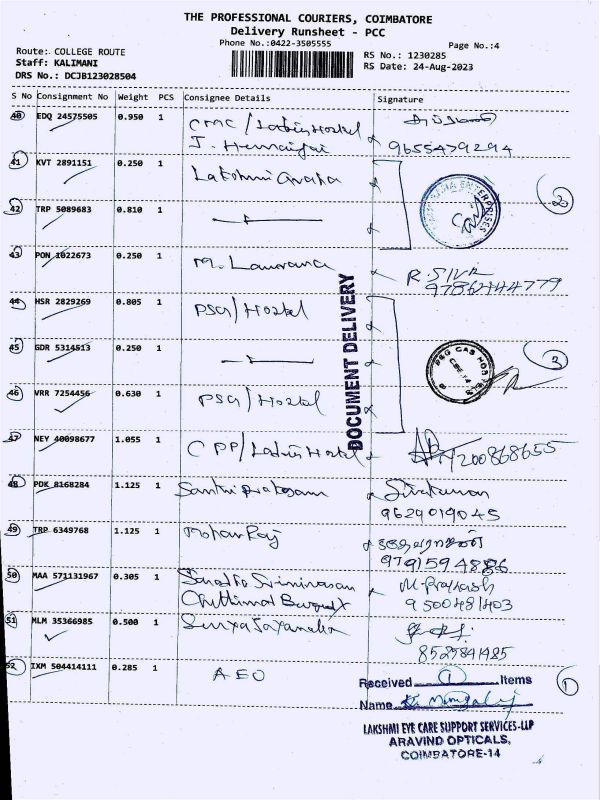 THE PROFESSIONAL COURIERS, COIMBATORE
Delivery Runsheet - PCC
Phone No.:0422-3505555
Page No.:4
Route: COLLEGE ROUTE
Staff: KALIMANI
DRS No.: DCJB123028504
RS No.: 1230285
RS Date: 24-Aug-2023
S No Consignment No Weight PCS Consignee Details Signature
40 EDQ 24575505 0.950 1 CMC/Ladies Hostel
9655479294
41 KVT 2891151 0.250 1 Lakshmi
ENTERPRISES
2
42 TRP 5089683 0.810 1
43 PON 1022673 0.250 1 M. R. SIVA
9786444779
DOCUMENT DELIVERY
44 HSR 2829269 0.805 1 PSG/Hostel
45 GDR 5314513 0.250 1
PSG CAS HOS
3
46 VRR 7254456 0.630 1 PSG/Hostel
47 NEY 40098677 1.055 1 CPP/Ladies Hostel 7200868655
48 PDK 8168284 1.125 1 Sivakumar
9629019045
49 TRP 6349768 1.125 1 Mohan Raj
9791594886
50 MAA 571131967 0.305 1 Srinivasan M. Prakash
9500481403
51 MLM 35366985 0.500 1
8529841485
52 IXM 504414111 0.285 1 AEO
Received 1 Items
1
Name
LAKSHMI EYE CARE SUPPORT SERVICES-LLP
ARAVIND OPTICALS,
COIMBATORE-14